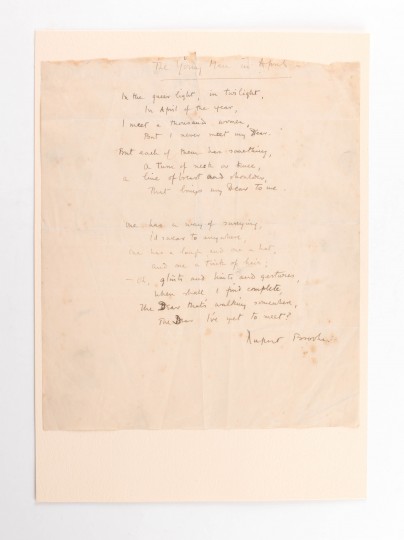 The Young Man in April
In the queer light, in twilight,
In April of the year,
I meet a thousand women,
But I never meet my Dear.
But each of them has something,
A turn of neck or knee,
a line of breast and shoulder,
That brings my Dear to me.
One has a way of swaying,
I'd swear to anywhere,
One has a laugh, and one a hat,
and one a trick of hair;
— Oh, glints and hints and gestures,
When shall I find complete
The Dear that's walking somewhere,
The Dear I've yet to meet!
Rupert Brooke